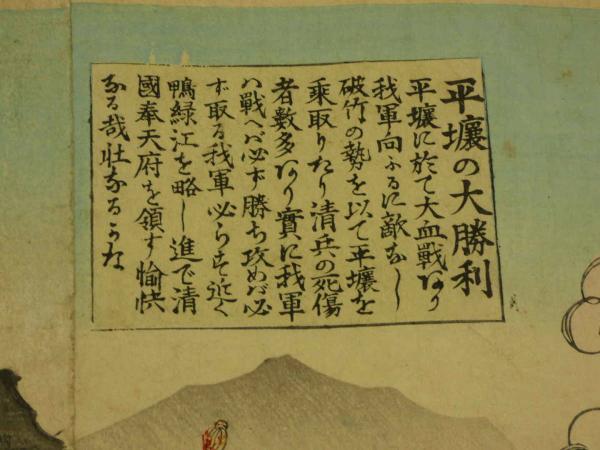 平壤の大勝利
平壤に於て大血戰あり
我軍向ふるに敵なし
破竹の勢を以て平壤を
乘取りたり清兵の死傷
者數多あり實に我軍
ハ戰へば必ず勝ち攻めば必
ず取る我軍必らず近く
鴨緑江を略し進で清
國奉天府を領す愉快
なる哉壯なるかな